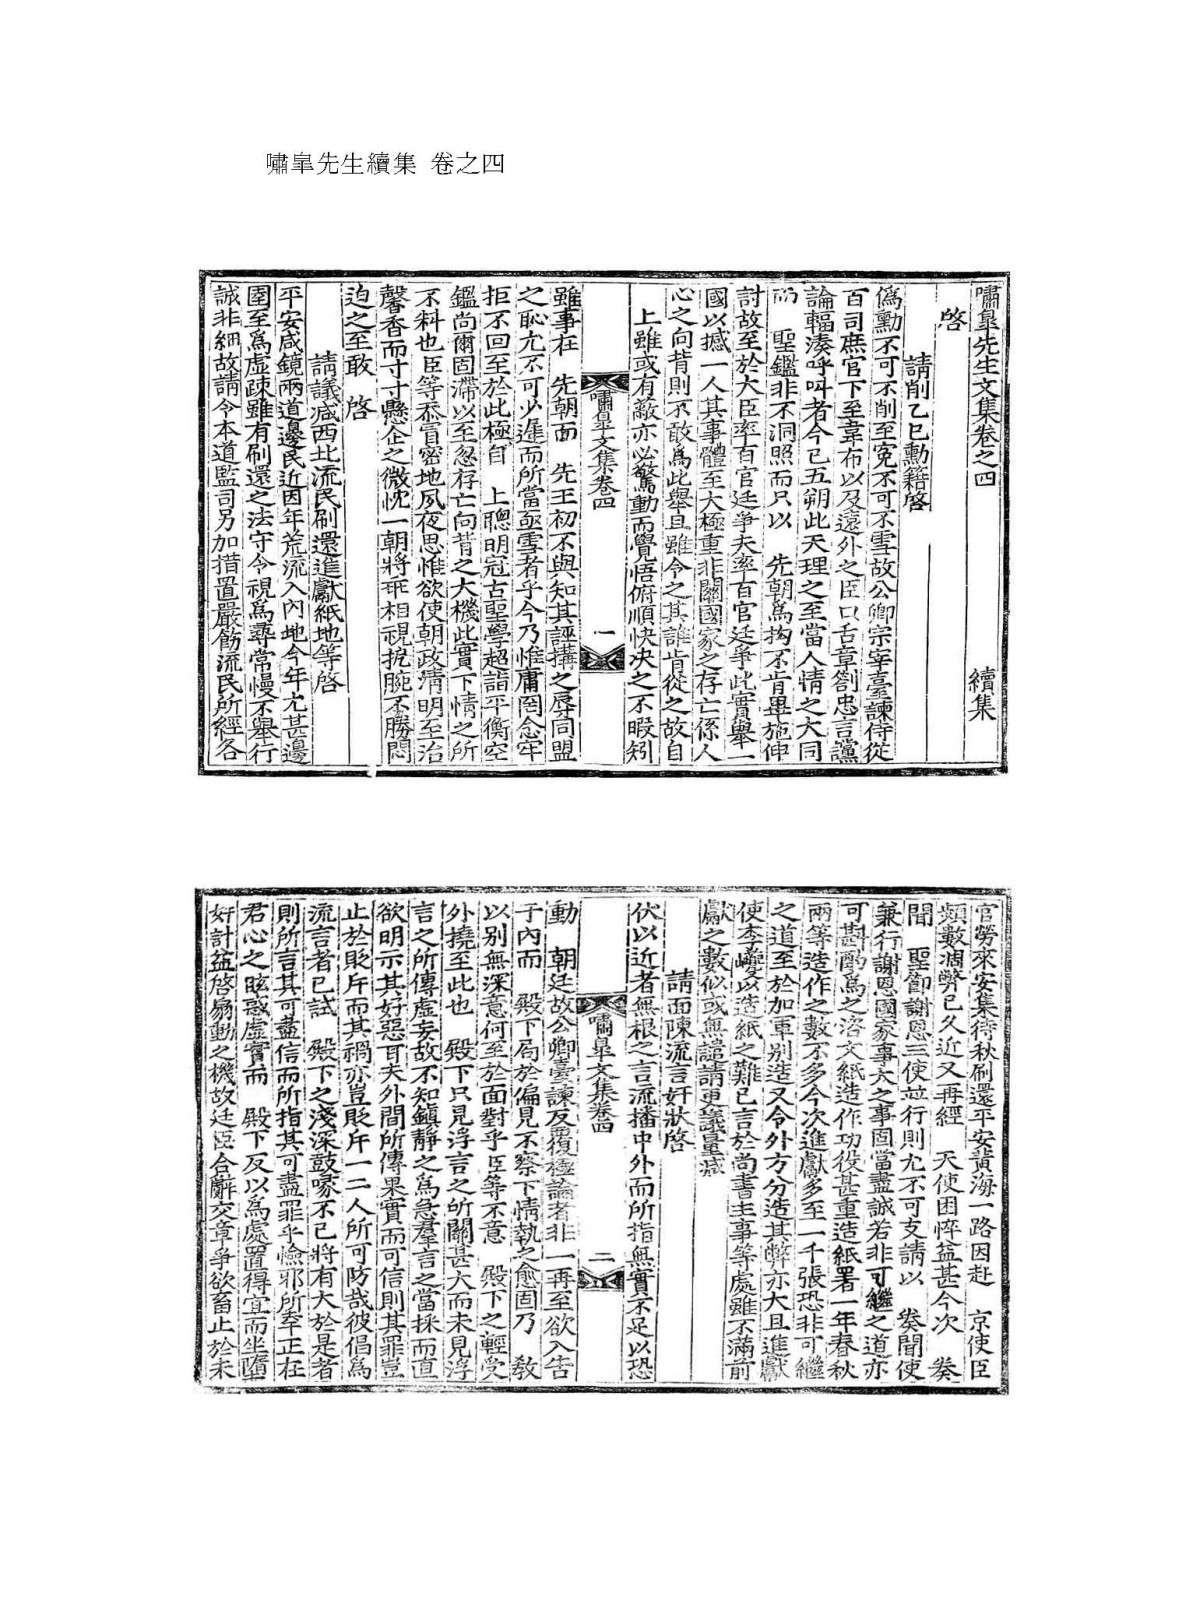 嘯皐先生續集 卷之四
嘯皐先生文集卷之四 續集
啓
請削乙巳勳籍啓
僞勳不可不削至冤不可不雪故公卿宗宰臺諫侍從
百司庶官下至韋布以及遠外之臣口舌章劄忠言讜
論輻湊呼叫者今已五朔此天理之至當人情之大同
而 聖鑑非不洞照而只以 先朝爲拘不肯畢施伸
討故至於大臣率百官廷爭夫率百官廷爭此實舉一
國以撼一人其事體至大極重非關國家之存亡係人
心之向背則不敢爲此舉且雖令之其誰肯從之故自
上雖或有敵亦必驚動而覺悟俯順快决之不暇矧
嘯皐文集卷四 一
雖事在 先朝而 先王初不與知其誣搆之辱苟同盟
之恥尤不可少遲而所當亟雪者乎今乃惟庸罔念牢
拒不回至於此極自 上聰明冠古聖學超詣平衡空
鑑尚爾固滯以至忽存亡向背之大機此實下情之所
不料也臣等忝冒密地夙夜思惟欲使朝政淸明至治
馨香而寸寸懸企之微忱一朝將乖相視扼腕不勝悶
迫之至敢 啓
請議减西北流民刷還進獻紙地等啓
平安咸鏡兩道邊民近因年荒流入內地今年尤甚邊
圉至爲虛疎雖有刷還之法守令視爲尋常慢不舉行
誠非細故請令本道監司另加措置嚴飭流民所經各
官勞來安集待秋刷還平安黃海一路因赴 京使臣
頻數凋弊已久近又再經 天使困悴益甚今次 奏
聞 聖節謝恩三使竝行則尤不可支請以 奏聞使
兼行謝恩國家事大之事固當盡誠若非可繼之道亦
可斟酌爲之咨文紙造作功役甚重造紙署一年春秋
兩等造作之數不多今次進獻多至一千張恐非可繼
之道至於加重別造又令外方分造其弊亦大且進獻
使李巙以造紙之難已言於尚書主事等處雖不滿前
獻之數似或無譴請更議量减
請面陳流言奸狀啓
伏以近者無根之言流播中外而所指無實不足以恐
嘯皐文集卷四 二
動 朝廷故公卿臺諫反覆極論者非一再至欲入告
子內而 殿下局於偏見不察下情執之愈固乃 敎
以別無深意何至於面對乎臣等不意 殿下之輕受
外撓至此也 殿下只見浮言之所關甚大而未見浮
言之所傳虛妄故不知鎭靜之爲急羣言之當採而直
欲明示其好惡耳夫外間所傳果實而可信則其罪豈
止於貶斥而其禍亦豈貶斥一二人所可防哉彼倡爲
流言者已試 殿下之淺深鼓喙不已將有大於是者
則所言其可盡信而所指其可盡罪乎憸邪所㝎正在
君心之眩惑虛實而 殿下反以爲處置得宜而坐墮
奸計益啓易動之機故廷臣合辭交章爭欲畜止於未